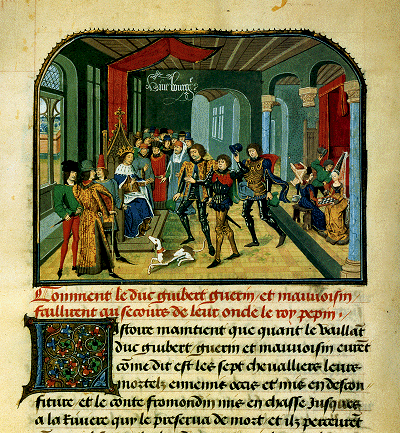 Comment le duc guibert guerin et mauvoisin
faillirent au secours de leur oncle le roy pepin .
Listoire maintient que quant le vaillāt
duc guibert guerin et mauvoisin eurēt
cōme dit est les sept chevalliers leurs
mortelz ennemis occis et mis en descon
fiture et le conte fromondin mis en chasse Jusques
a la Riviere quy le preserva de mort et ilz perceurēt